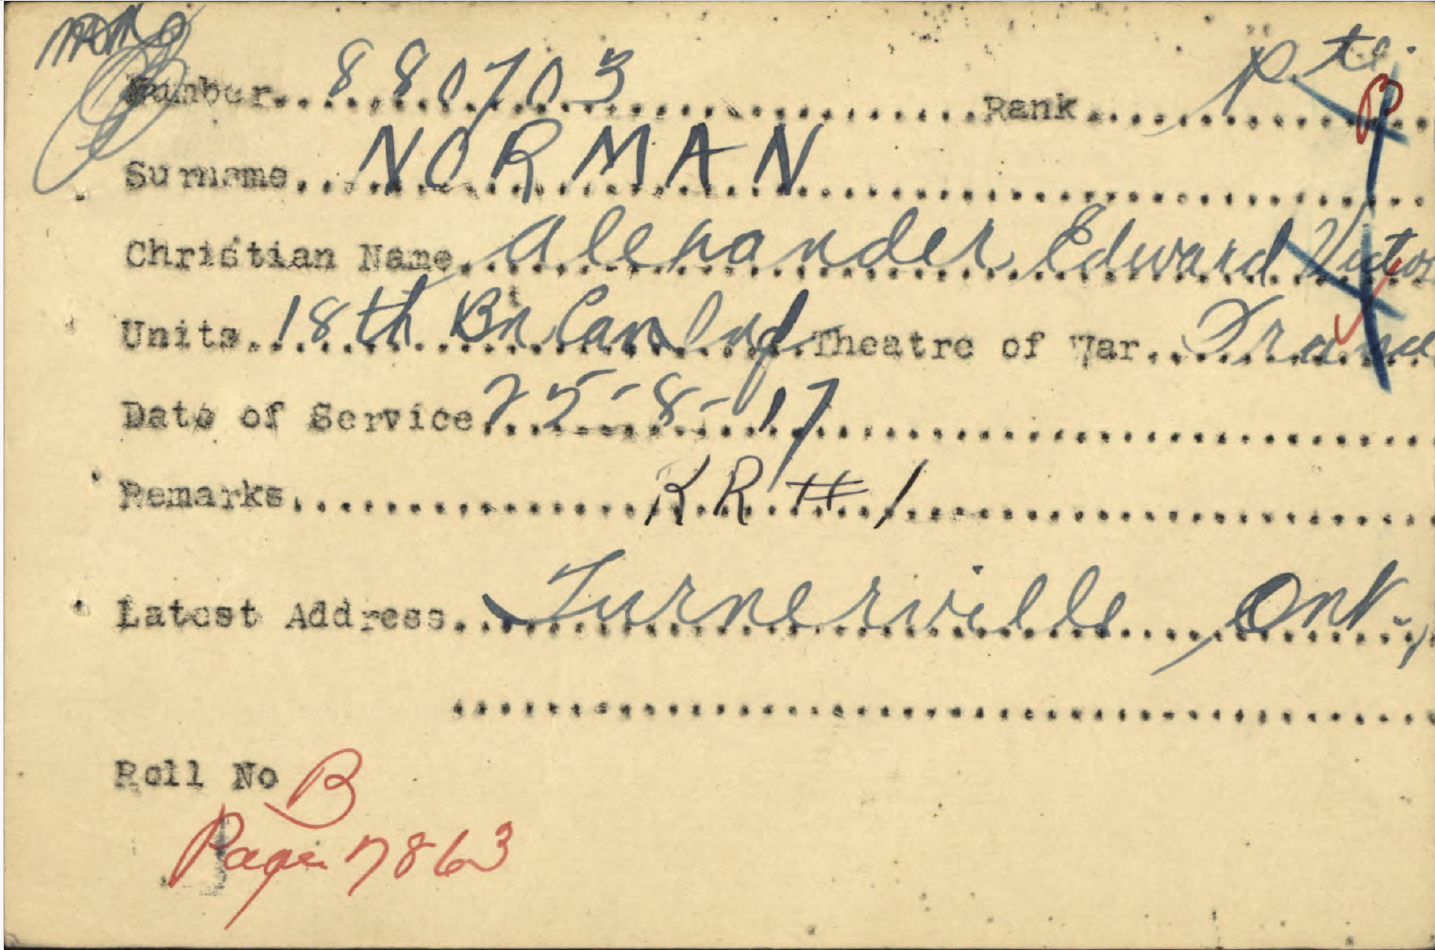 Number 880703 Rank Pte.
B
Surname NORMAN
Christian Name Alexander Edward Victor
Units 18th Bn Can Inf Theatre of War France
Date of Service 25-8-17
Remarks KR # 1
Latest Address Turnerville, Ont.,
Roll No B
Page 7863